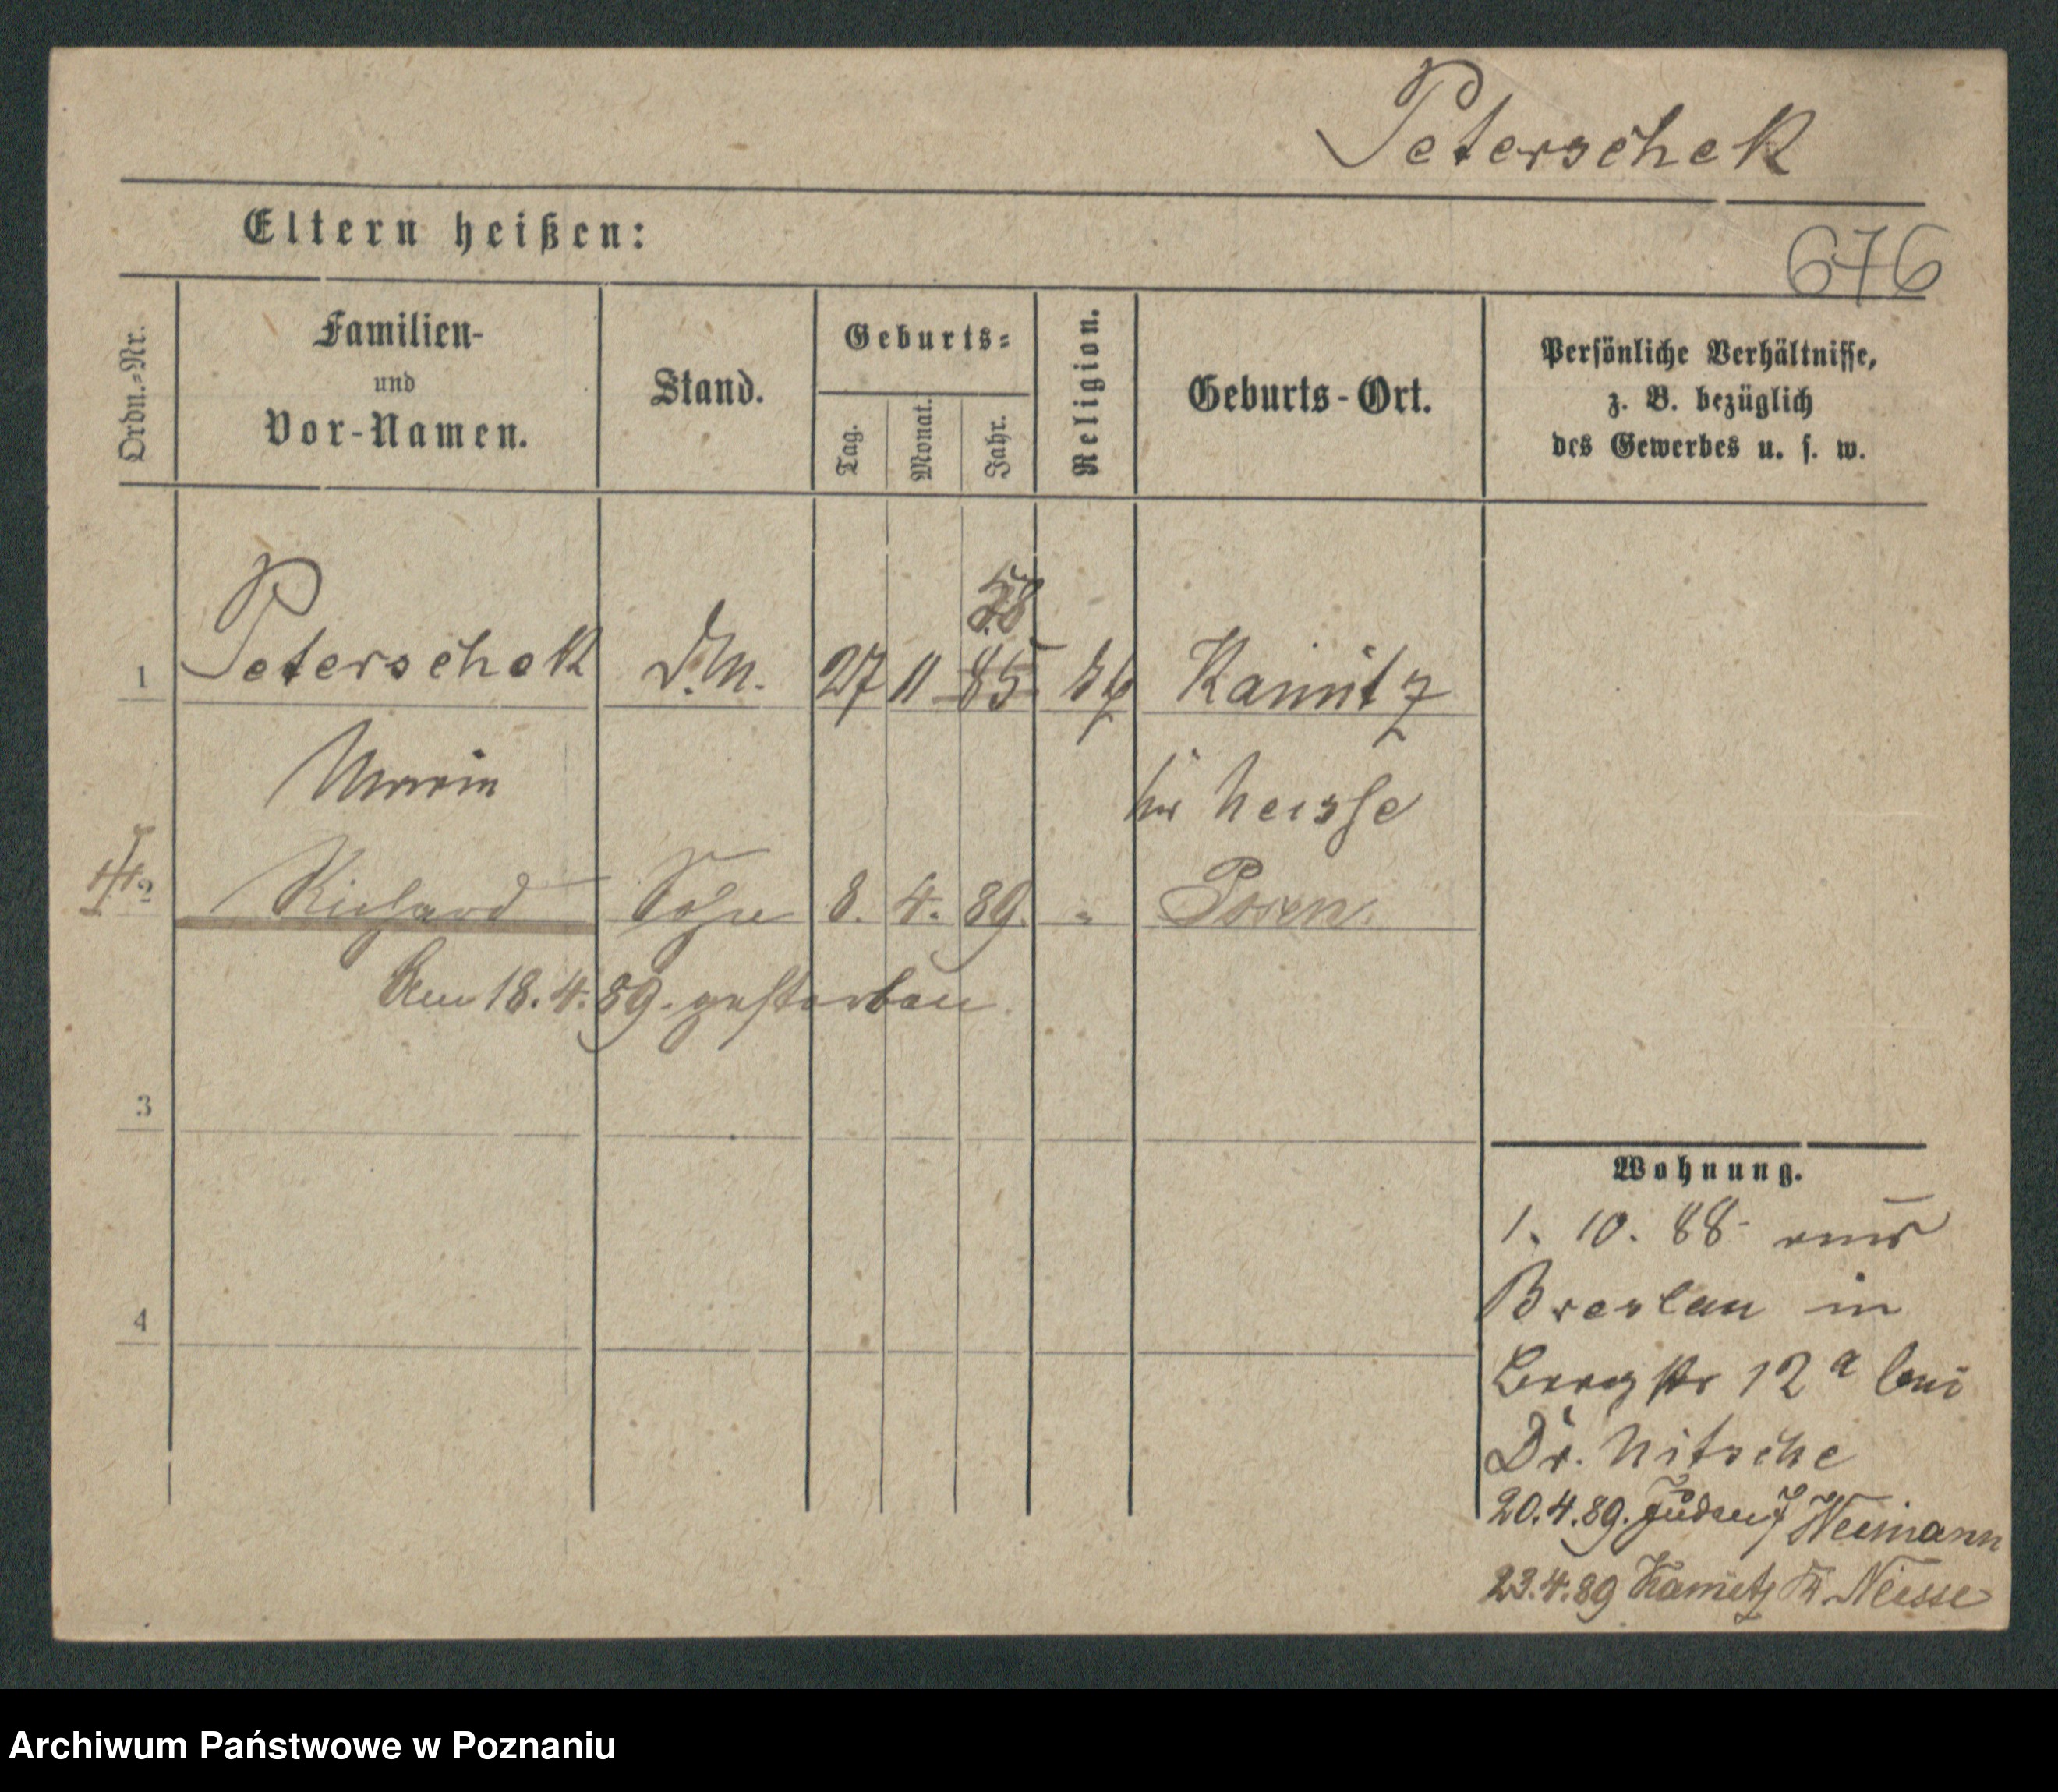 Peterschek
Eltern heißen:
676
Ordn.-Nr.
Familien-
und
Vor-Namen.
Stand.
Geburts-
Tag.
Monat.
Jahr.
Religion.
Geburts-Ort.
Persönliche Verhältnisse,
z. B. bezüglich
des Gewerbes u. s. w.
58
1 Peterschek D.M. 27 11 85 kth Kamitz
Maria
bei Neisse
2 Richard Sohn 8. 4. 89. " Posen.
Am 18.4.89. gestorben
3
4
Wohnung.
1. 10. 88 aus
Breslau in
Bergstr 12 a bei
Dr. Nitsche
20.4.89. Weimann
23.4.89 Kamitz Kr. Neisse
Archiwum Państwowe w Poznaniu